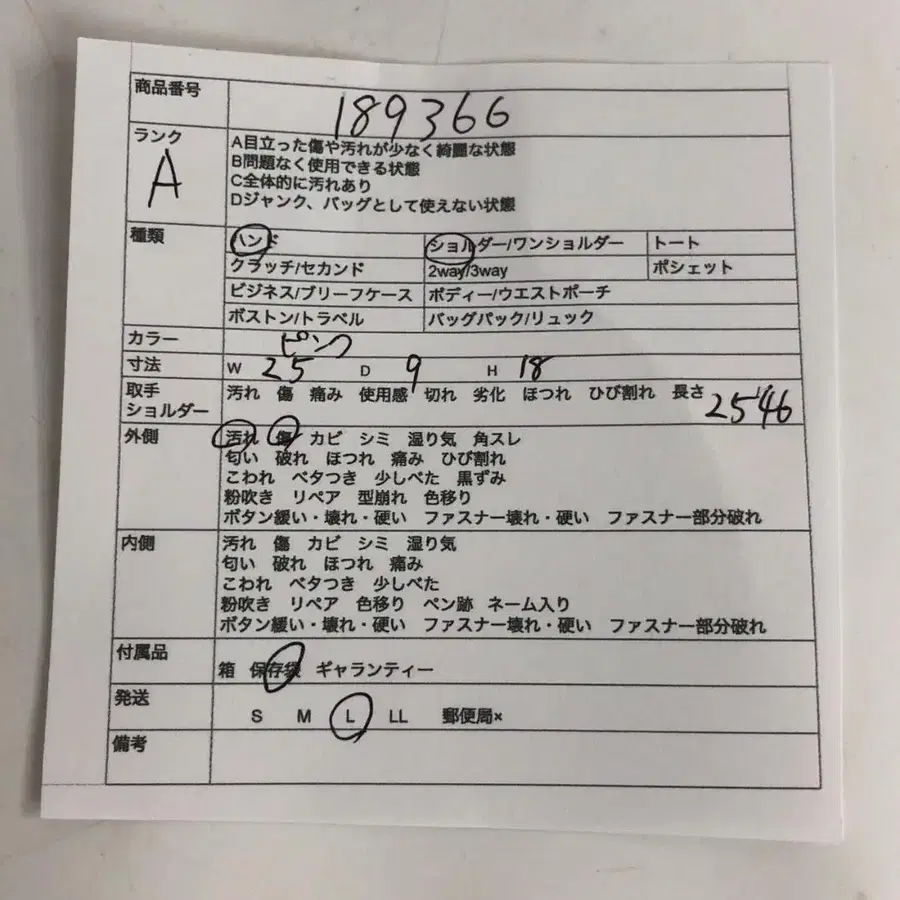 商品番号 189366
ランク A
A目立った傷や汚れが少なく綺麗な状態
B問題なく使用できる状態
C全体的に汚れあり
Dジャンク、バッグとして使えない状態
種類 ハンド ショルダー/ワンショルダー トート
クラッチ/セカンド 2way/3way ポシェット
ビジネス/ブリーフケース ボディー/ウエストポーチ
ボストン/トラベル バッグパック/リュック
カラー ピンク
寸法 W 25 D 9 H 18
取手 汚れ 傷 痛み 使用感 切れ 劣化 ほつれ ひび割れ 長さ 25 46
ショルダー
外側 汚れ 傷 カビ シミ 湿り気 角スレ
匂い 破れ ほつれ 痛み ひび割れ
こわれ ベタつき 少しべた 黒ずみ
粉吹き リペア 型崩れ 色移り
ボタン緩い・壊れ・硬い ファスナー壊れ・硬い ファスナー部分破れ
内側 汚れ 傷 カビ シミ 湿り気
匂い 破れ ほつれ 痛み
こわれ ベタつき 少しべた
粉吹き リペア 色移り ペン跡 ネーム入り
ボタン緩い・壊れ・硬い ファスナー壊れ・硬い ファスナー部分破れ
付属品 箱 保存袋 ギャランティー
発送 S M L LL 郵便局×
備考